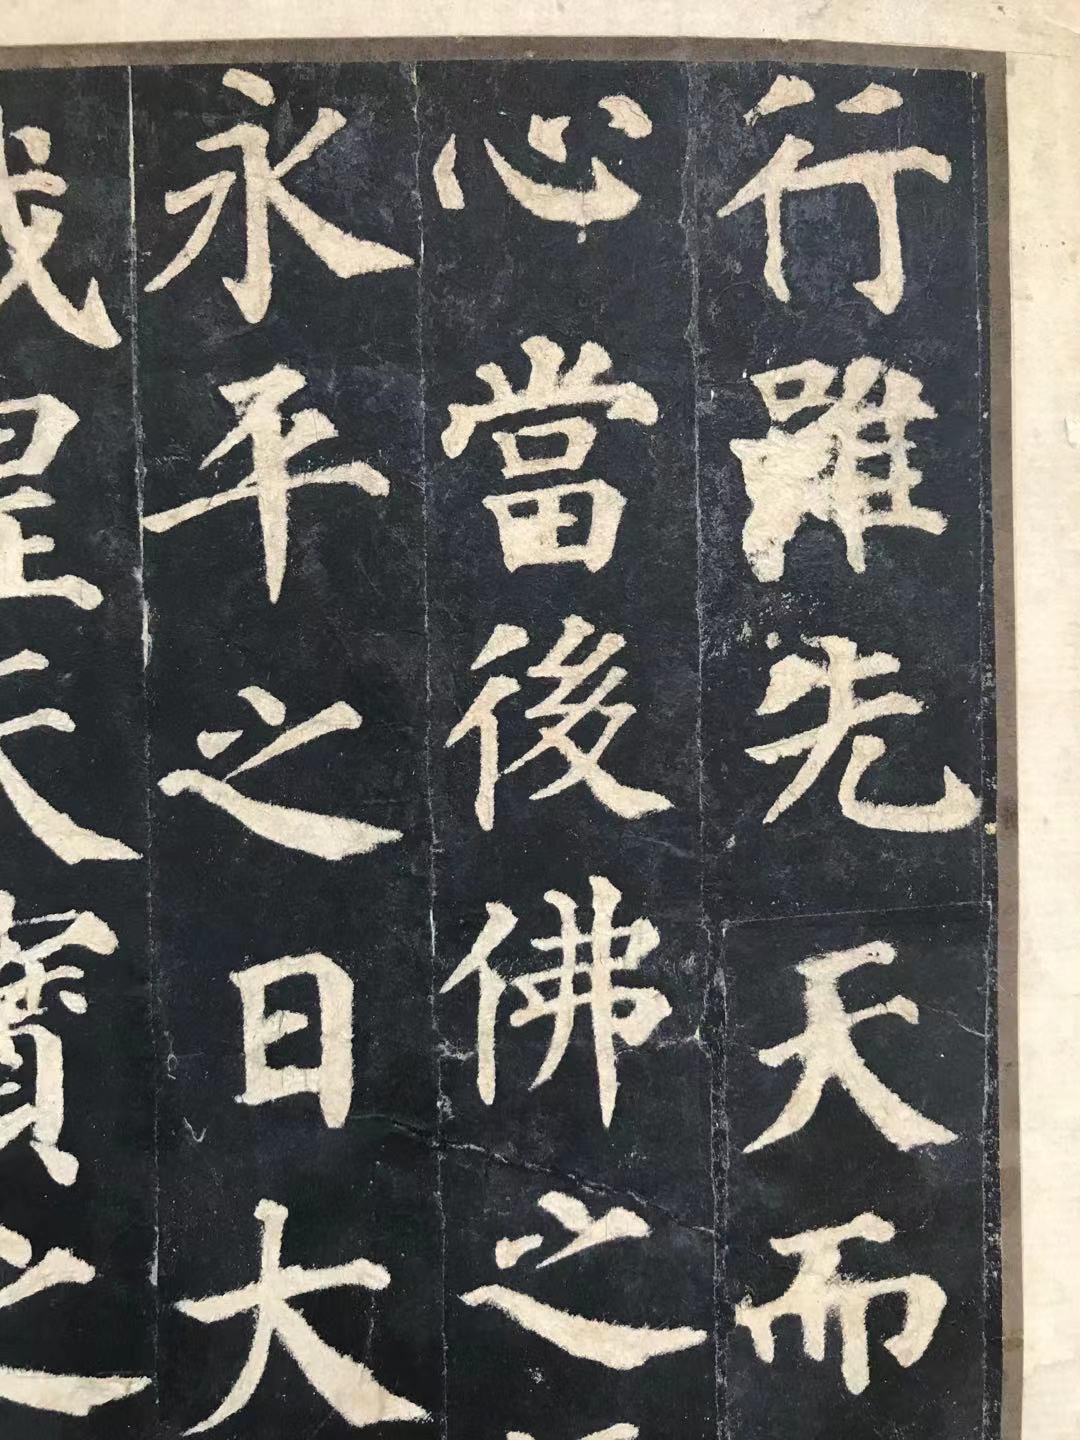 行雖先天而
心當後佛之
永平之日大
天寶之